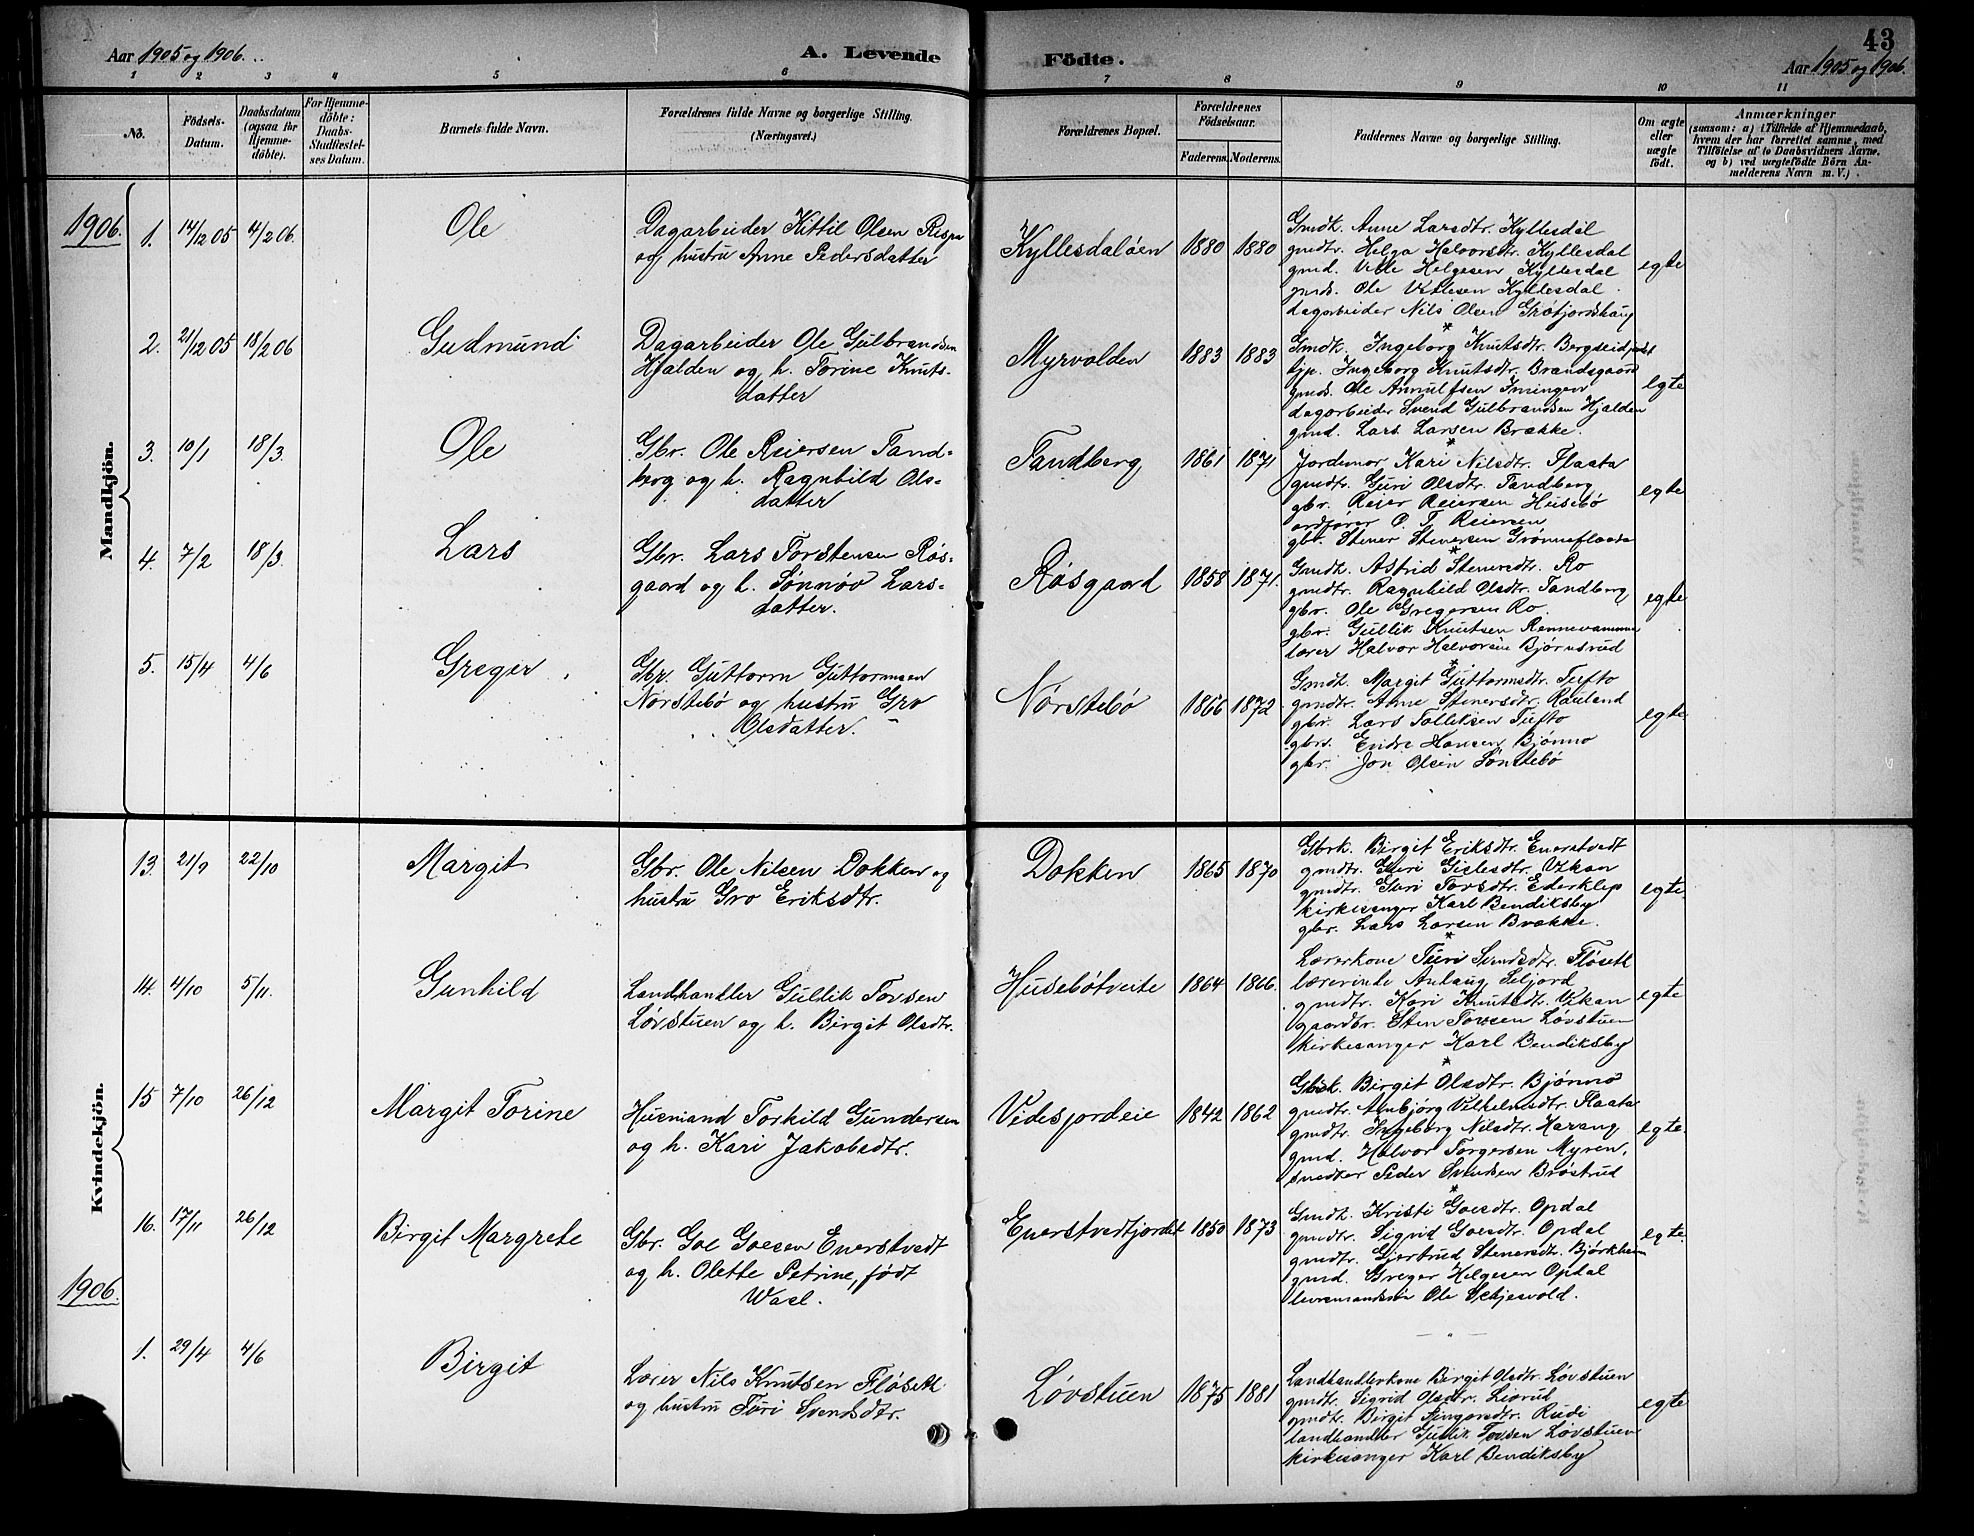 Aar 1905 og 1906.
A. Levende
Födte.
43
Aar 1905 og 1906.
1 2 3 4 5 6 7 8 9 10 11
No.
Födsels-
Datum.
Daabsdatum
(ogsaa for
Hjemme-
döbte).
For Hjemme-
döbte:
Daabs-
Stadfæstel-
ses Datum.
Barnets fulde Navn.
Forældrenes fulde Navne og borgerlige Stilling.
(Næringsvei.)
Forældrenes Bopæl.
Forældrenes
Födselsaar.
Faderens. Moderens.
Faddernes Navne og borgerlige Stilling.
Om ægte
eller
uægte
födt.
Anmærkninger
(saasom: a) i Tilfælde af Hjemmedaab,
hvem der har forrettet samme, med
Tilföielse af to Daabsvidners Navne.
og b) ved uægtefödte Börn An-
melderens Navn m. V.) .
Mandkjön.
1906.
1. 14/12 05 4/2 06. Ole
Dagarbeider Kittil Olsen
og hustru Anne Pedersdatter
Kyllesdaløen 1880 1880
Gmdk. Anne Larsdtr. Kyllesdal
gmdtr. Helga Halvorsdtr. Kyllesdal
gmd. Velle Helgesen Kyllesdal
gmds. Ole Vetlesen Kyllesdal.
dagarbeider Nils Olsen
egte
2. 21/12 05 18/2 06 Gudmund
Dagarbeider Ole Gulbrandsen
Hjalden og h. Torine Knuts-
datter
Myrvolden 1883 1883
Gmdk. Ingeborg Knutsdtr.
tjp. Ingeborg Knutsdtr. Brandsgaard
gmds. Ole Arnulfsen Imingen
dagarbeider Svend Gulbrandsen Hjalden
gmd. Lars Larsen Brække.
egte
3. 10/1 18/3. Ole
Gbr. Ole Reiersen Tand-
berg og h. Ragnhild Ols-
datter
Tandberg 1861 1871
Jordemor Kari Nilsdtr. Flaata
gmdtr. Guri Olsdtr. Tandberg
gbr. Reier Reiersen Husebø
ordfører O. T. Reiersen
gbr. Stener Stenersen Grønneflaata
egte
4. 7/2 18/3. Lars
Gbr. Lars Torstensen Røs-
gaard og h. Sønnøv Lars-
datter.
Røsgaard 1858 1871.
Gmdk. Astrid Stenersdtr. Ro
gmdtr. Ragnhild Olsdtr. Tandberg
gbr. Ole Gregersen Ro.
gbr. Gullik Knutsen Rennevammen
lærer Halvor Halvorsen Bjørnsrud
egte
5. 15/4 4/6 Greger
Gbr. Guttorm Guttormsen
Nørstebø og hustru Gro
Olsdatter.
Nørstebø 1866 1872
Gmdk. Margit Guttormsdtr. Tufto
gmdtr. Anne Stenersdtr. Rauland
gbr. Lars Tolleksen Tufto
gbrs. Endre Hansen Bjønno
gbr. Jon Olsen Sønstebø
egte
Kvindekjön.
13. 21/9 22/10 Margit
Gbr. Ole Nilsen Dokken og
hustru Gro Eriksdtr.
Dokken 1865 1870
Gbrk. Birgit Eriksdtr. Enerstvedt
gmdtr. Guri Gislesdtr. Vikan
gmdtr. Guri Torsdtr. Ederklep
kirkesanger Karl Bendiksby
gbr. Lars Larsen Brække.
egte.
14. 4/10 5/11. Gunhild
Landhandler Gullik Torsen
Løvstuen og h. Birgit Olsdtr.
Husebøtveite 1864 1866.
Lærerkone Turi Svendsdtr. Fløseth
lærerinde Anlaug Seljord
gmdtr. Kari Knutsdtr. Vikan
gaardbr. Sten Torsen Løvstuen
kirkesanger Karl Bendiksby
egte
15 7/10 26/12 Margit Torine
Husmand Torkild Gundersen
og h. Kari Jakobsdtr.
Videsjordeie 1842 1862
Gbsk. Birgit Olsdtr. Bjønno
gmdtr. Anbjørg Vilhelmsdtr. Flaata
gmdtr. Ingeborg Nilsdtr. Harang
gmd. Halvor Torgersen Myren,
snedker Peder Svendsen Brøstrud
egte.
16. 17/11 26/12 Birgit Margrete
Gbr. Goe Goesen Enerstvedt
og h. Olette Petrine, født
Wael.
Enerstvedtjordet 1850 1873
Gmdk. Kristi Goesdtr. Opdal
gmdtr. Sigrid Goesdtr. Opdal
gmdtr. Gjertrud Stenersdtr. Bjørkheim
gmd. Greger Helgesen Opdal
lensmandssøn Ole Schjesvold.
egte.
1906.
1. 29/4 4/6 Birgit
Lærer Nils Knutsen Fløseth
og hustru Turi Svendsdtr.
Løvstuen 1875 1881
Landhandlerkone Birgit Olsdtr. Løvstuen
gmdtr. Sigrid Olsdtr. Liorud
gmdtr. Birgit Ningarsdtr. Rudi
landhandler Gullik Torsen Løvstuen
kirkesanger Karl Bendiksby
egte